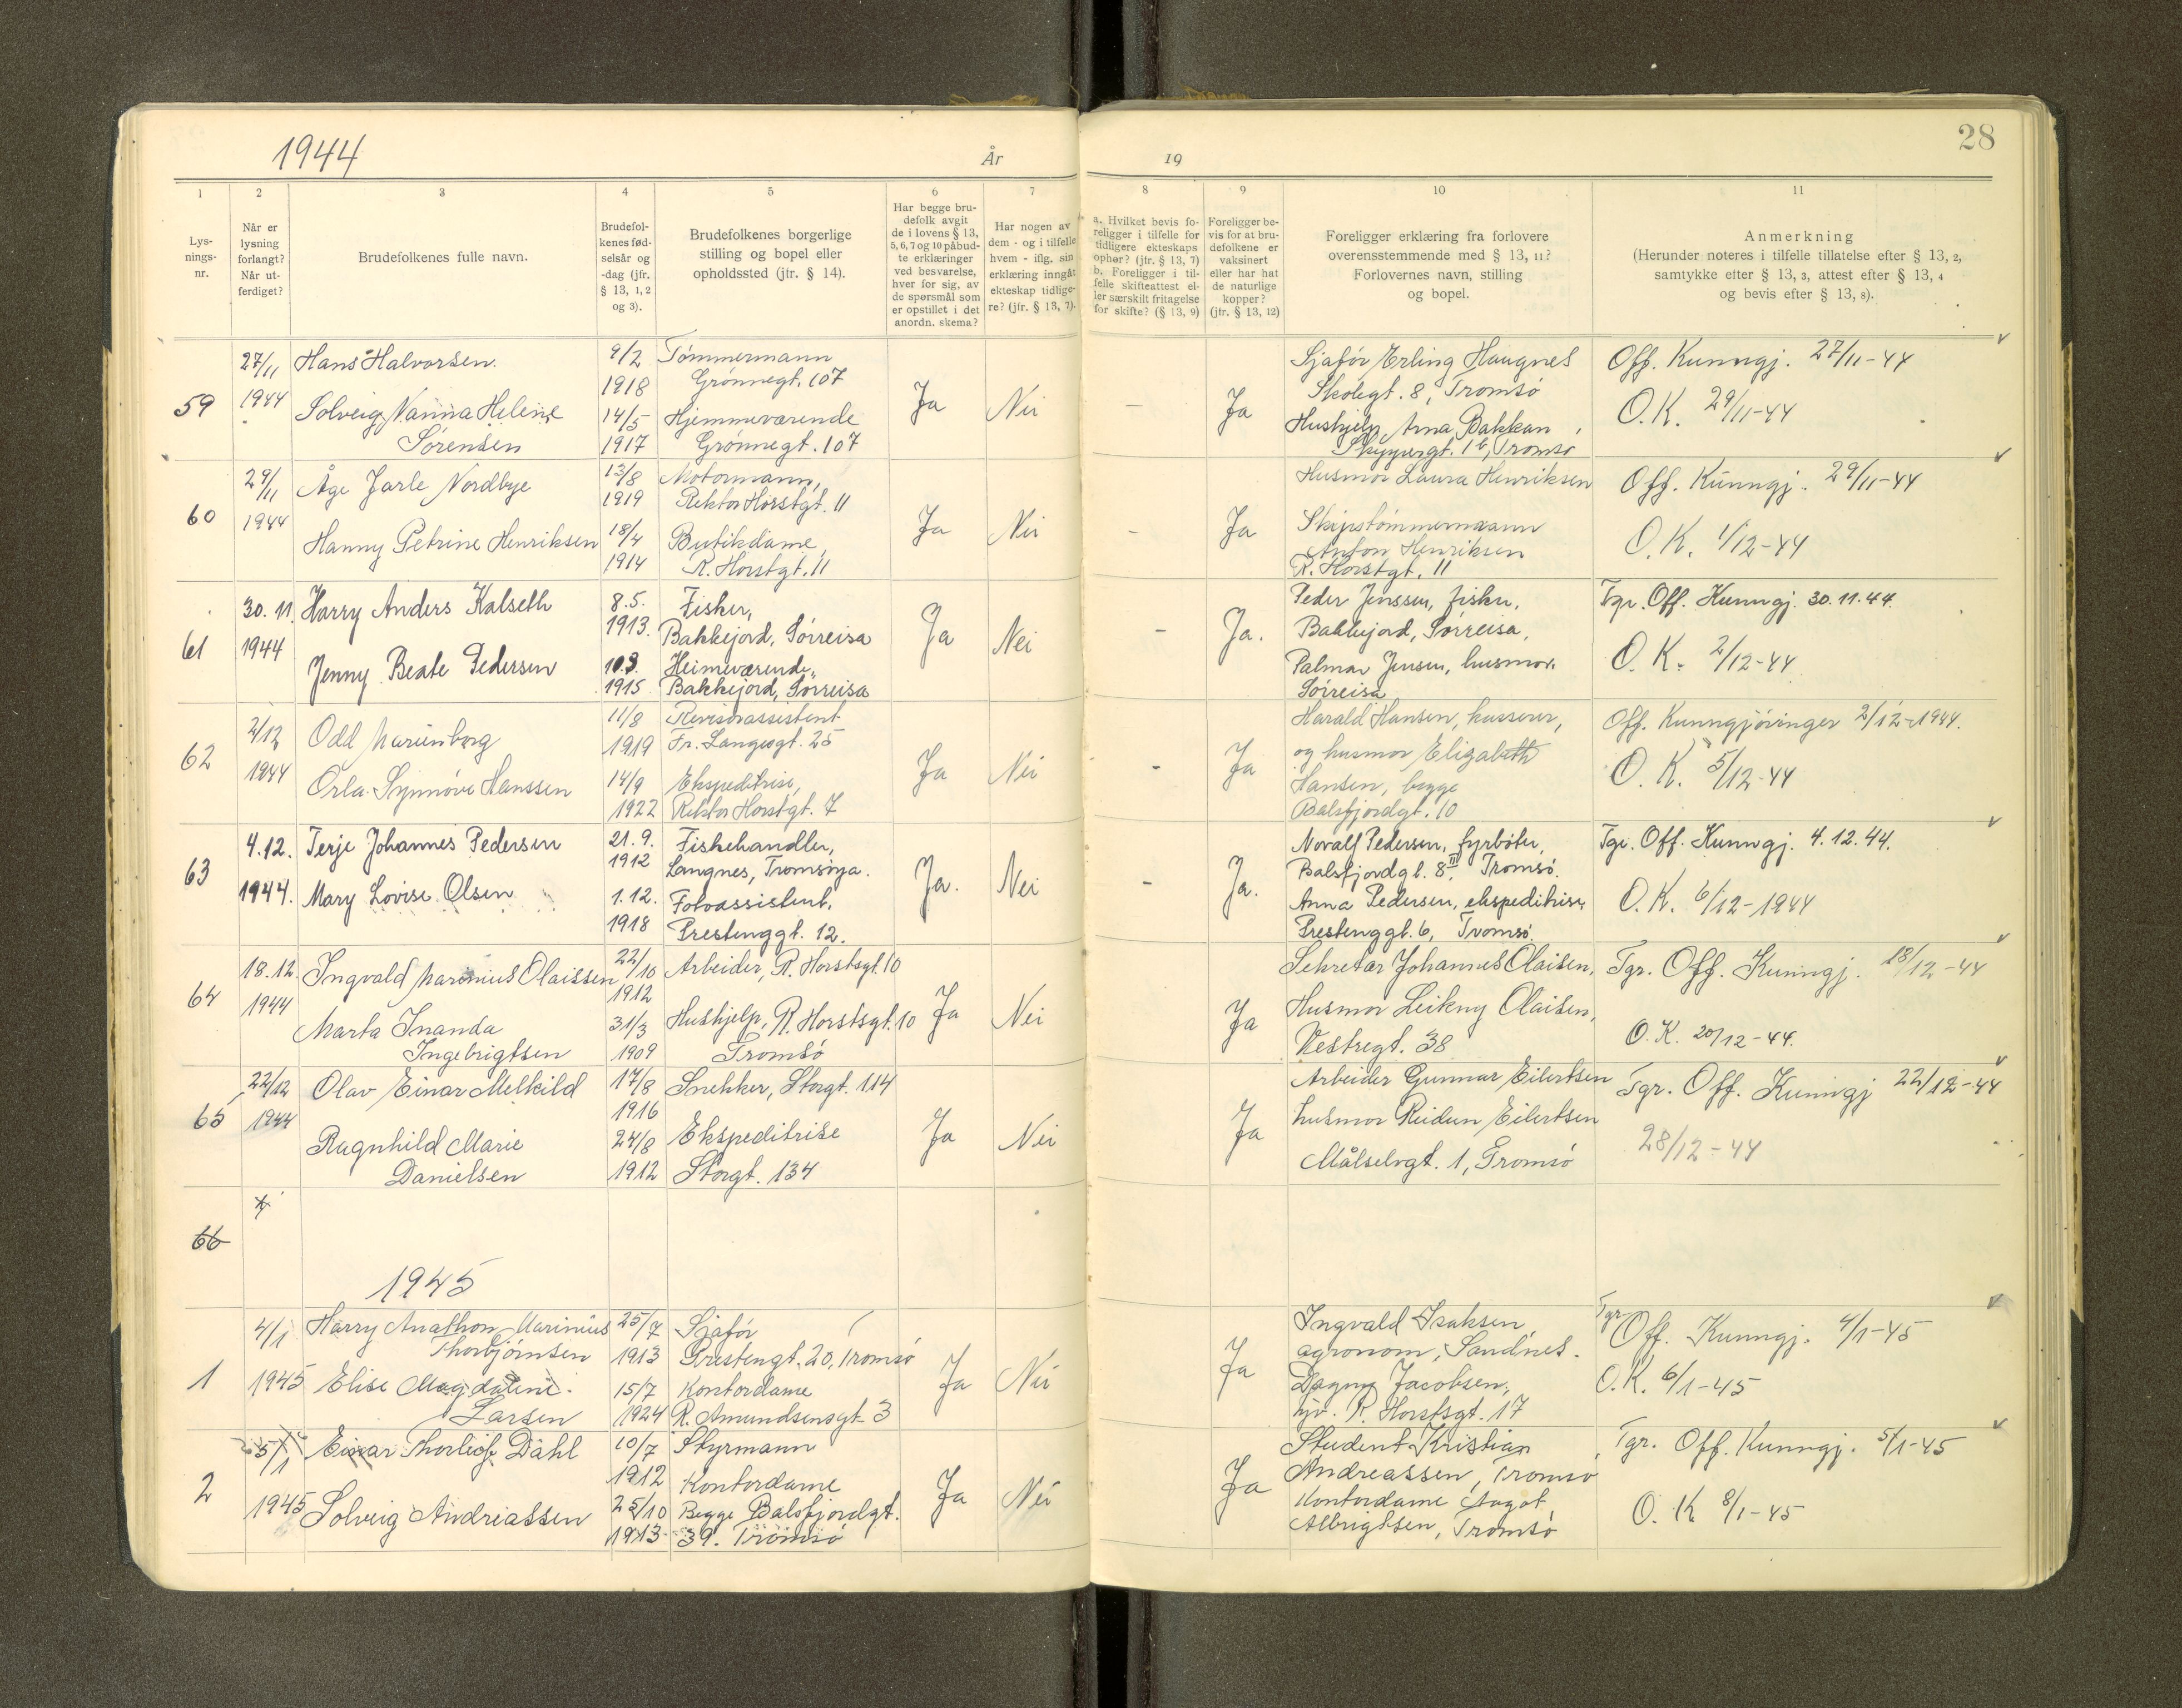 1944
År
19
28
1
2
3
4
5
6
7
8
9
10
11
Lys-
nings-
nr.
Når er
lysning
forlangt?
Når ut-
ferdiget?
Brudefolkenes fulle navn.
Brudefol-
kenes fød-
selsår og
-dag (jfr.
§ 13, 1, 2
og 3).
Brudefolkenes borgerlige
stilling og bopel eller
opholdssted (jfr. § 14).
Har begge bru-
defolk avgit
de i lovens § 13,
5, 6, 7 og 10 påbud-
te erklæringer
ved besvarelse,
hver for sig, av
de spørsmål som
er opstillet i det
anordn. skema?
Har nogen av
dem - og i tilfelle
hvem - iflg. sin
erklæring inngåt
ekteskap tidlige-
re? (jfr. § 13, 7).
a. Hvilket bevis fo-
religger i tilfelle for
tidligere ekteskaps
ophør? (jfr. § 13, 7)
b. Foreligger i til-
felle skifteattest el-
ler særskilt fritagelse
for skifte? (§ 13, 9)
Foreligger be-
vis for at bru-
defolkene er
vaksinert
eller har hat
de naturlige
kopper?
(jfr. § 13, 12)
Foreligger erklæring fra forlovere
overensstemmende med § 13, 11?
Forlovernes navn, stilling
og bopel.
Anmerkning
(Herunder noteres i tilfelle tillatelse efter § 13, 2,
samtykke efter § 13, 3, attest efter § 13, 4
og bevis efter § 13, 8).
59
27/11
1944
Hans Halvorsen.
Solveig Nanna Helene
Sørensen
9/2
1918
14/5
1917
Tømmermann
Grønnegt. 107
Hjemmeværende
Grønnegt. 107
Ja
Nei
-
Ja
Sjafør Erling Haugnes
Skolegt. 8, Tromsø
Hushjelp Arna Bakkan,
Skippergt. 1b, Tromsø
Off. Kunngj. 27/11-44
O.K. 29/11-44
60
29/11
1944
Åge Jarle Nordbye
Hanny Petrine Henriksen
13/8
1919
18/4
1914
Motormann,
Rektor Horstgt. 11
Butikdame,
R. Horstgt. 11
Ja
Nei
-
Ja
Husmor Laura Henriksen
Skipstømmermann
Anton Henriksen
R. Horstgt. 11
Off. Kunngj. 29/11-44
O.K. 1/12-44
61
30. 11.
1944
Harry Anders Kalseth
Jenny Beate Pedersen
8.5.
1913.
10.3.
1915
Fisker,
Bakkejord, Sørreisa
Heimeværende,
Bakkejord, Sørreisa
Ja
Nei
-
Ja.
Peder Jenssen, fisker,
Bakkejord, Sørreisa,
Palmar Jensen, husmor.
Sørreisa
Tgr. Off. Kunngj. 30.11.44.
O.K. 2/12-44.
62
2/12
1944
Odd Marienborg
Orla Synnøve Hanssen
11/8
1919
14/9
1922
Revisorassistent
Fr. Langesgt. 25
Ekspeditrise,
Rektor Horstgt. 7
Ja
Nei
-
Ja
Harald Hansen, kasserer,
og husmor Elizabeth
Hansen, begge
Balsfjordgt. 10
Off. Kunngjøringer 2/12-1944.
O.K. 5/12-44
63
4.12.
1944.
Terje Johannes Pedersen
Mary Lovise Olsen
21.9.
1912
1.12.
1918
Fiskehandler,
Langnes, Tromsøya.
Fotoassistent,
Prestenggt. 12.
Ja.
Nei
-
Ja.
Noralf Pedersen, fyrbøter,
Balsfjordgt. 8 III, Tromsø.
Anna Pedersen, ekspeditrise
Prestenggt. 6, Tromsø.
Tgr. Off. Kunngj. 4.12.44.
O.K. 6/12-1944
64
18.12.
1944
Ingvald Marenius Olaissen
Marta Inanda
Ingebrigtsen
22/10
1912
31/3
1909
Arbeider, R. Horstsgt. 10
Hushjelp, R. Horstsgt. 10
Tromsø
Ja
Nei
Ja
Sekretær Johannes Olaisen,
Husmor Leikny Olaisen,
Vestregt. 38
Tgr. Off. Kunngj. 18/12-44
O.K. 20/12-44.
65
22/12
1944
Olav Einar Melkild
Ragnhild Marie
Danielsen
17/8
1916
24/8
1912
Snekker, Storgt. 114
Ekspeditrise
Storgt. 134
Ja
Nei
Ja
Arbeider Gunnar Eilertsen
husmor Reidun Eilertsen
Målselvgt. 1, Tromsø
Tgr. Off. Kunngj 22/12-44
28/12-44
66
1945
1
4/1
1945
Harry Anathon Marinius
Thorbjørnsen
Elise Magdalene
Larsen
25/7
1913
15/7
1924
Sjafør
Prestengt. 20, Tromsø
Kontordame
R. Amundsensgt. 3
Ja
Nei
Ja
Ingvald Isaksen,
agronom, Sandnes.
Dagny Jacobsen,
hjv. R. Horstsgt. 17
Tgr. Off. Kunngj. 4/1-45
O.K. 6/1-45
2
5/1
1945
Einar Thorleif Dahl
Solveig Andreassen
10/7
1912
25/10
1913
Styrmann
Kontordame
Begge Balsfjordgt.
39. Tromsø
Ja
Nei
Ja
Student Kristian
Andreassen, Tromsø
Kontordame Aagot
Albrigtsen, Tromsø
Tgr. Off. Kunngj. 5/1-45
O.K 8/1-45